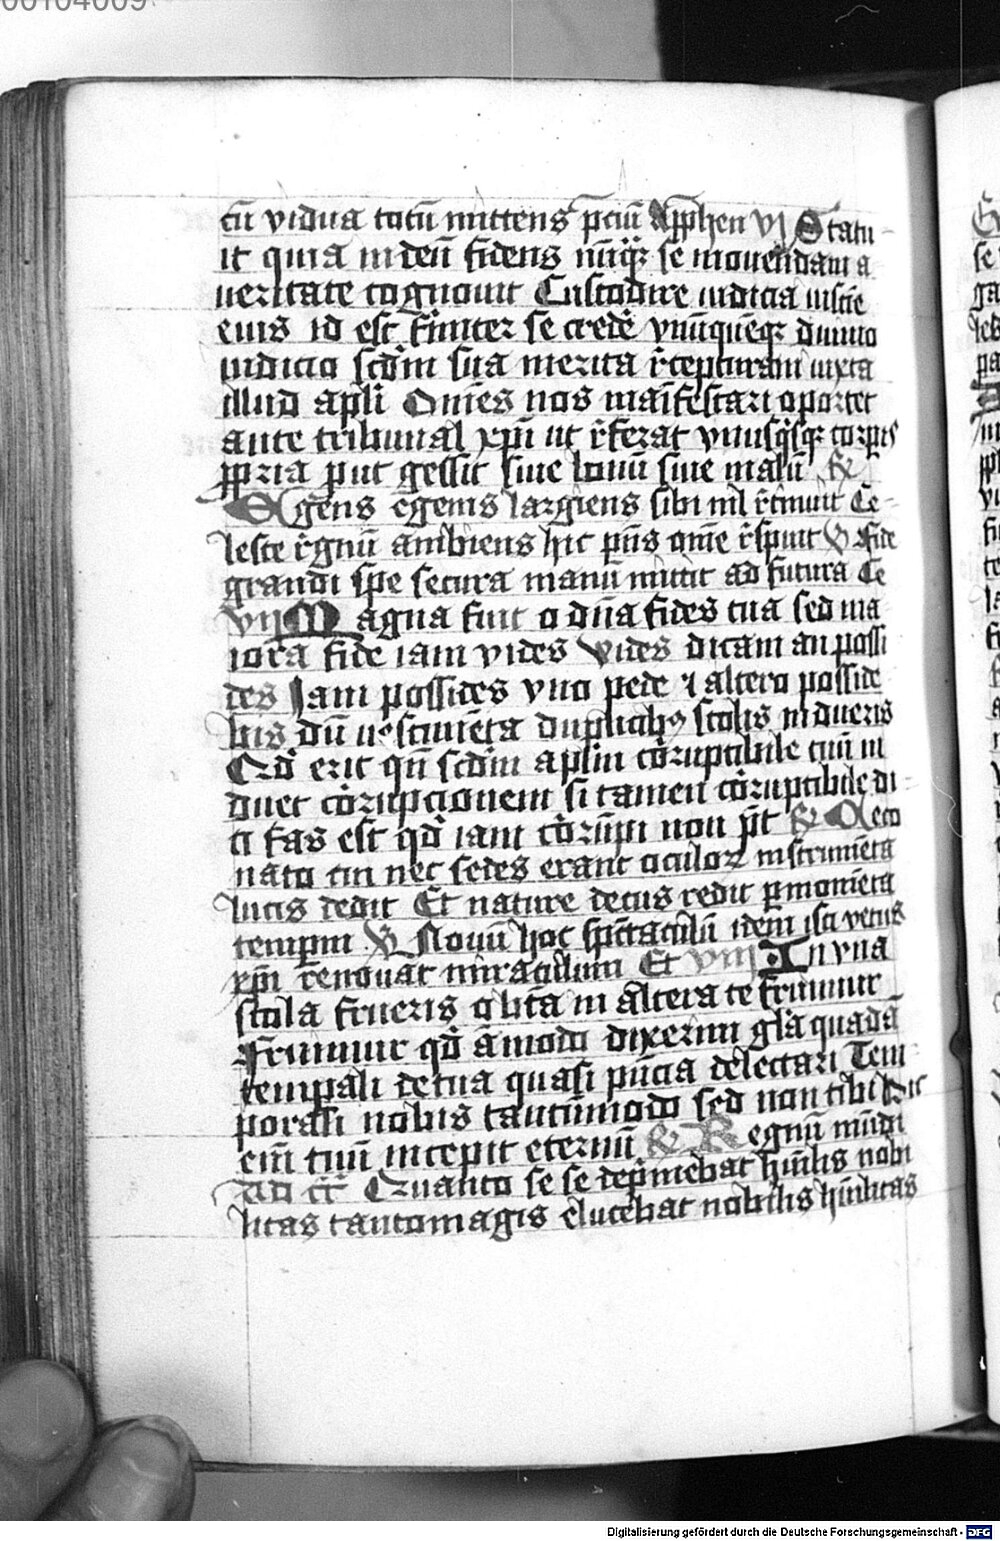 00104009
cū vidua totū mittens p̄ciū App̄hen vj Statu-
it quia in deū fidens nūq̄ꝫ se mouendam a
ueritate cognouit Custodire iudicia iusticie
eius id est firmiter se crede᷑ vnūquēqꝫ diuino
iudicio scd̄m sua merita r̄cepturam iuxta
illud apl̄i Om̄es nos maīfestari oportet
ante tribunal xp̄i ut r̄ferat vnusq̄sqꝫ corpis
ꝓpria put gessit siue bonū siue malū ℟
Egens egenis largiens sibi nil r̄tinuit Ce-
leste r̄gnū ambiens hic pn̄s om̄e r̄spuit V Fide
grandi spe secura manū mittit ad futura Ce
vij Magna fuit o dn̄a fides tua sed ma
iora fide iam vides Vides dicam an possi
des Jam possides vno pede ⁊ altero posside
bis dū uestimēta duplicibꝫ stolis indueris
Qd̄ erit qn̄ scd̄m aplm̄ cor̄uptibile tuū in
duet cor̄rupcionem si tamen cor̄uptibile di-
ci fas est qd̄ iam cor̄ūpi non pt̄ ℟ Ceco
nato cui nec sedes erant oculoꝝ instrumēta
lucis dedit Et nature decus redit p momēta
tempm V Nouū hoc spectaculū idem isti vetus
xp̄m renouat miraculum Et viij In vna
stola frueris o bt̄a in altera te fruuntur
Fruuntur qd̄ amodi dixerim gl̄a quadā
tempali de tua quasi pn̄cia delectari Tem
porali nobis tantūmodo sed non tibi Hic
eni᷑ tuū incepit eternū ℟ Regnū mūdi
Ad cc̄ Quanto se se dep̄mebat hūilis nobi
litas tanto magis elucebat nobilis hūilitas
Digitalisierung gefördert durch die Deutsche Forschungsgemeinschaft - DFG